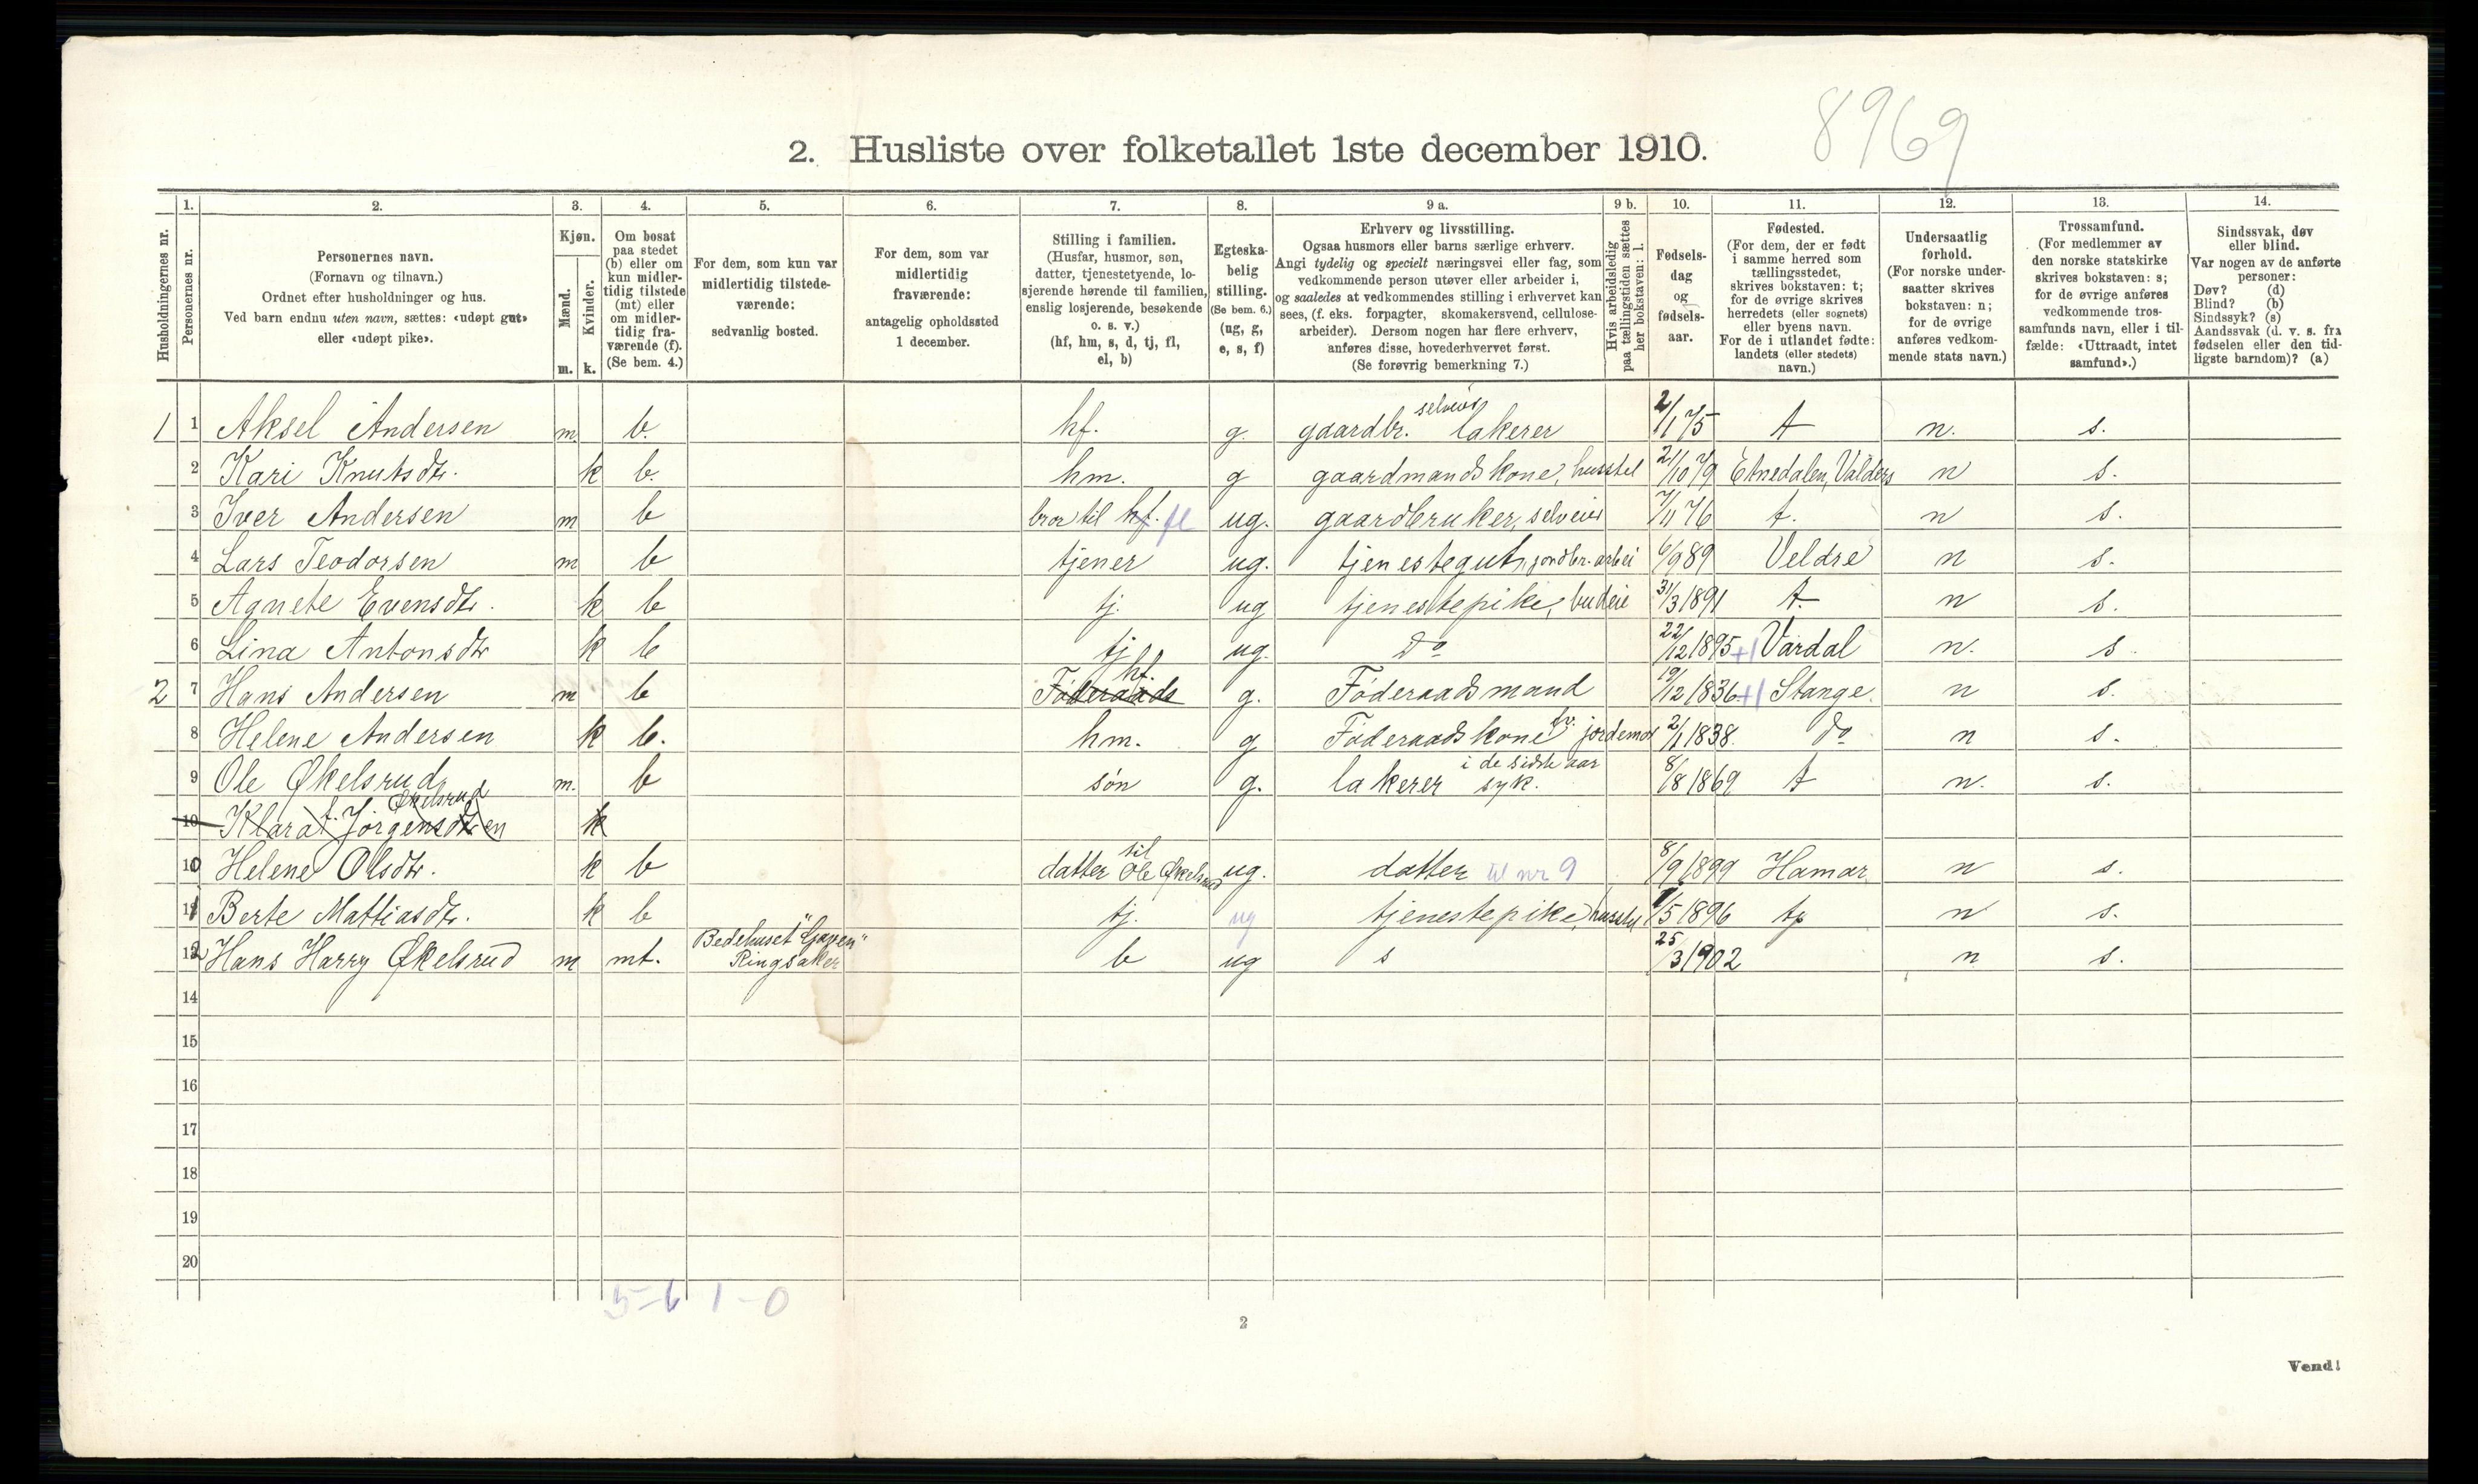 8969
2. Husliste over folketallet 1ste december 1910.
Husholdningernes nr.
1.
Personernes nr.
2.
Personernes navn.
(Fornavn og tilnavn.)
Ordnet efter husholdninger og hus.
Ved barn endnu uten navn, sættes: «udøpt gut»
eller «udøpt pike».
3.
Kjøn.
Mænd.
Kvinder.
m. k.
4.
Om bosat
paa stedet
(b) eller om
kun midler-
tidig tilstede
(mt) eller
om midler-
tidig fra-
værende (f).
(Se bem. 4.)
5.
For dem, som kun var
midlertidig tilstede-
værende:
sedvanlig bosted.
6.
For dem, som var
midlertidig
fraværende:
antagelig opholdssted
1 december.
7.
Stilling i familien.
(Husfar, husmor, søn,
datter, tjenestetyende, lo-
sjerende hørende til familien,
enslig losjerende, besøkende
o. s. v.)
(hf, hm, s, d, tj, fl,
el, b)
8.
Egteska-
belig
stilling.
(Se bem. 6.)
(ug, g,
e, s, f)
9 a.
Erhverv og livsstilling.
Ogsaa husmors eller barns særlige erhverv.
Angi tydelig og specielt næringsvei eller fag, som
vedkommende person utøver eller arbeider i,
og saaledes at vedkommendes stilling i erhvervet kan
sees, (f. eks. forpagter, skomakersvend, cellulose-
arbeider). Dersom nogen har flere erhverv,
anføres disse, hovederhvervet først.
(Se forøvrig bemerkning 7.)
9 b.
Hvis arbeidsledig
paa tællingstiden sættes
her bokstaven: l.
10.
Fødsels-
dag
og
fødsels-
aar.
11.
Fødested.
(For dem, der er født
i samme herred som
tællingsstedet,
skrives bokstaven: t;
for de øvrige skrives
herredets (eller sognets)
eller byens navn.
For de i utlandet fødte:
landets (eller stedets)
navn.)
12.
Undersaatlig
forhold.
(For norske under-
saatter skrives
bokstaven: n;
for de øvrige
anføres vedkom-
mende stats navn.)
13.
Trossamfund.
(For medlemmer av
den norske statskirke
skrives bokstaven: s;
for de øvrige anføres
vedkommende tros-
samfunds navn, eller i til-
fælde: «Uttraadt, intet
samfund».)
14.
Sindssvak, døv
eller blind.
Var nogen av de anførte
personer:
Døv? (d)
Blind? (b)
Sindssyk? (s)
Aandssvak (d. v. s. fra
fødselen eller den tid-
ligste barndom)? (a)
selveier
1 1 Aksel Andersen m. b. hf. g. gaardbr. lakerer 2/1 75 t n. s.
2 Kari Knutsdtr. k b. hm. g gaardmandskone, husstel 21/10 79 Etnedalen, Valders n s.
3 Iver Andersen m b bror til hf. fl ug. gaardbruker, selveier 7/11 76 t. n s.
4 Lars Teodorsen m b tjener ug. tjenestegut, jordbr. arbei 6/9 89 Veldre n s.
5 Agnete Evensdtr. k b tj. ug tjenestepike, budeie 31/3 1891 t. n s.
6 Lina Antonsdtr k b tj ug. do 22/12 1895 +1 Vardal n. s.
hf.
2 7 Hans Andersen m b Føderaads g. Føderaadsmand 19/12 1836 +1 Stange n s.
8 Helene Andersen k b. hm. g Føderaadskone fv. jordemor 2/1 1838. do n s.
i de sidste aar
9 Ole Økelsrud m. b søn g. lakerer syk. 8/8 1869 t n. s.
Økelsrud
10 Klara f. Jørgensdtr en k
til
10 Helene Olsdtr. k b datter Ole Økelsrud ug. datter til nr 9 8/9 1899 Hamar n s.
11 Berte Mattiasdtr. k b tj. ug tjenestepike, husstel 1/5 1896 t n s.
Bedehuset "Gapen"
12 Hans Harry Økelsrud m mt. Ringsaker b ug s 25/3 1902 n s.
14
15
16
17
18
19
20
5-6 1-0
2
Vend!